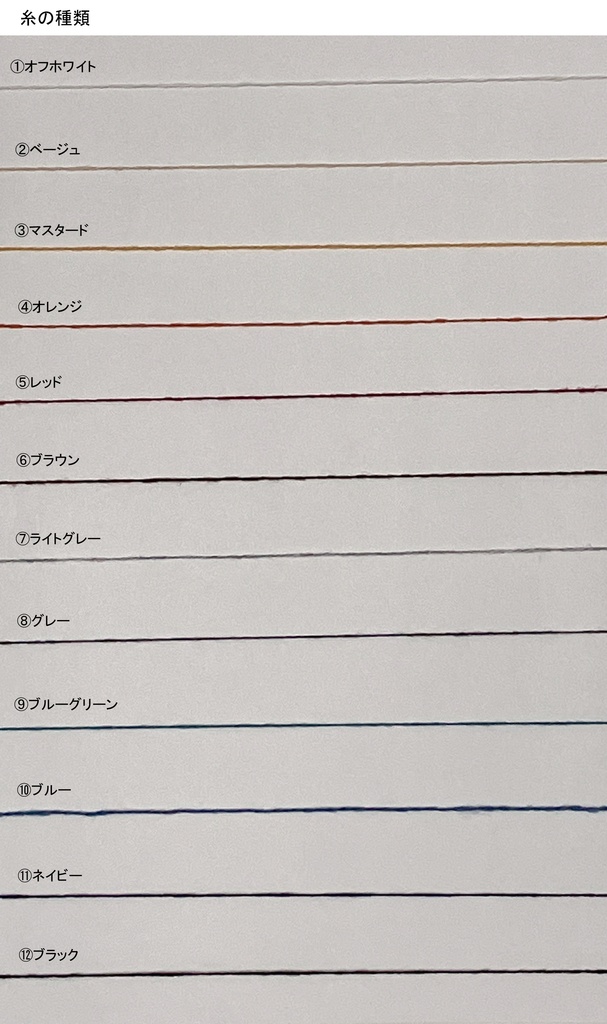 糸の種類
①オフホワイト
②ベージュ
③マスタード
④オレンジ
⑤レッド
⑥ブラウン
⑦ライトグレー
⑧グレー
⑨ブルーグリーン
⑩ブルー
⑪ネイビー
⑫ブラック